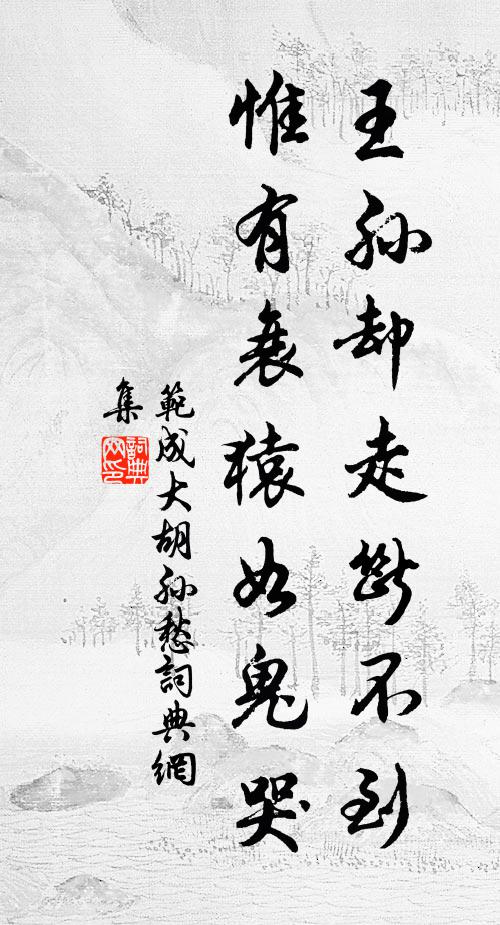 王孙却走断不到
惟有哀猿如鬼哭
範成大胡孙愁詞典網
集
詞典网印